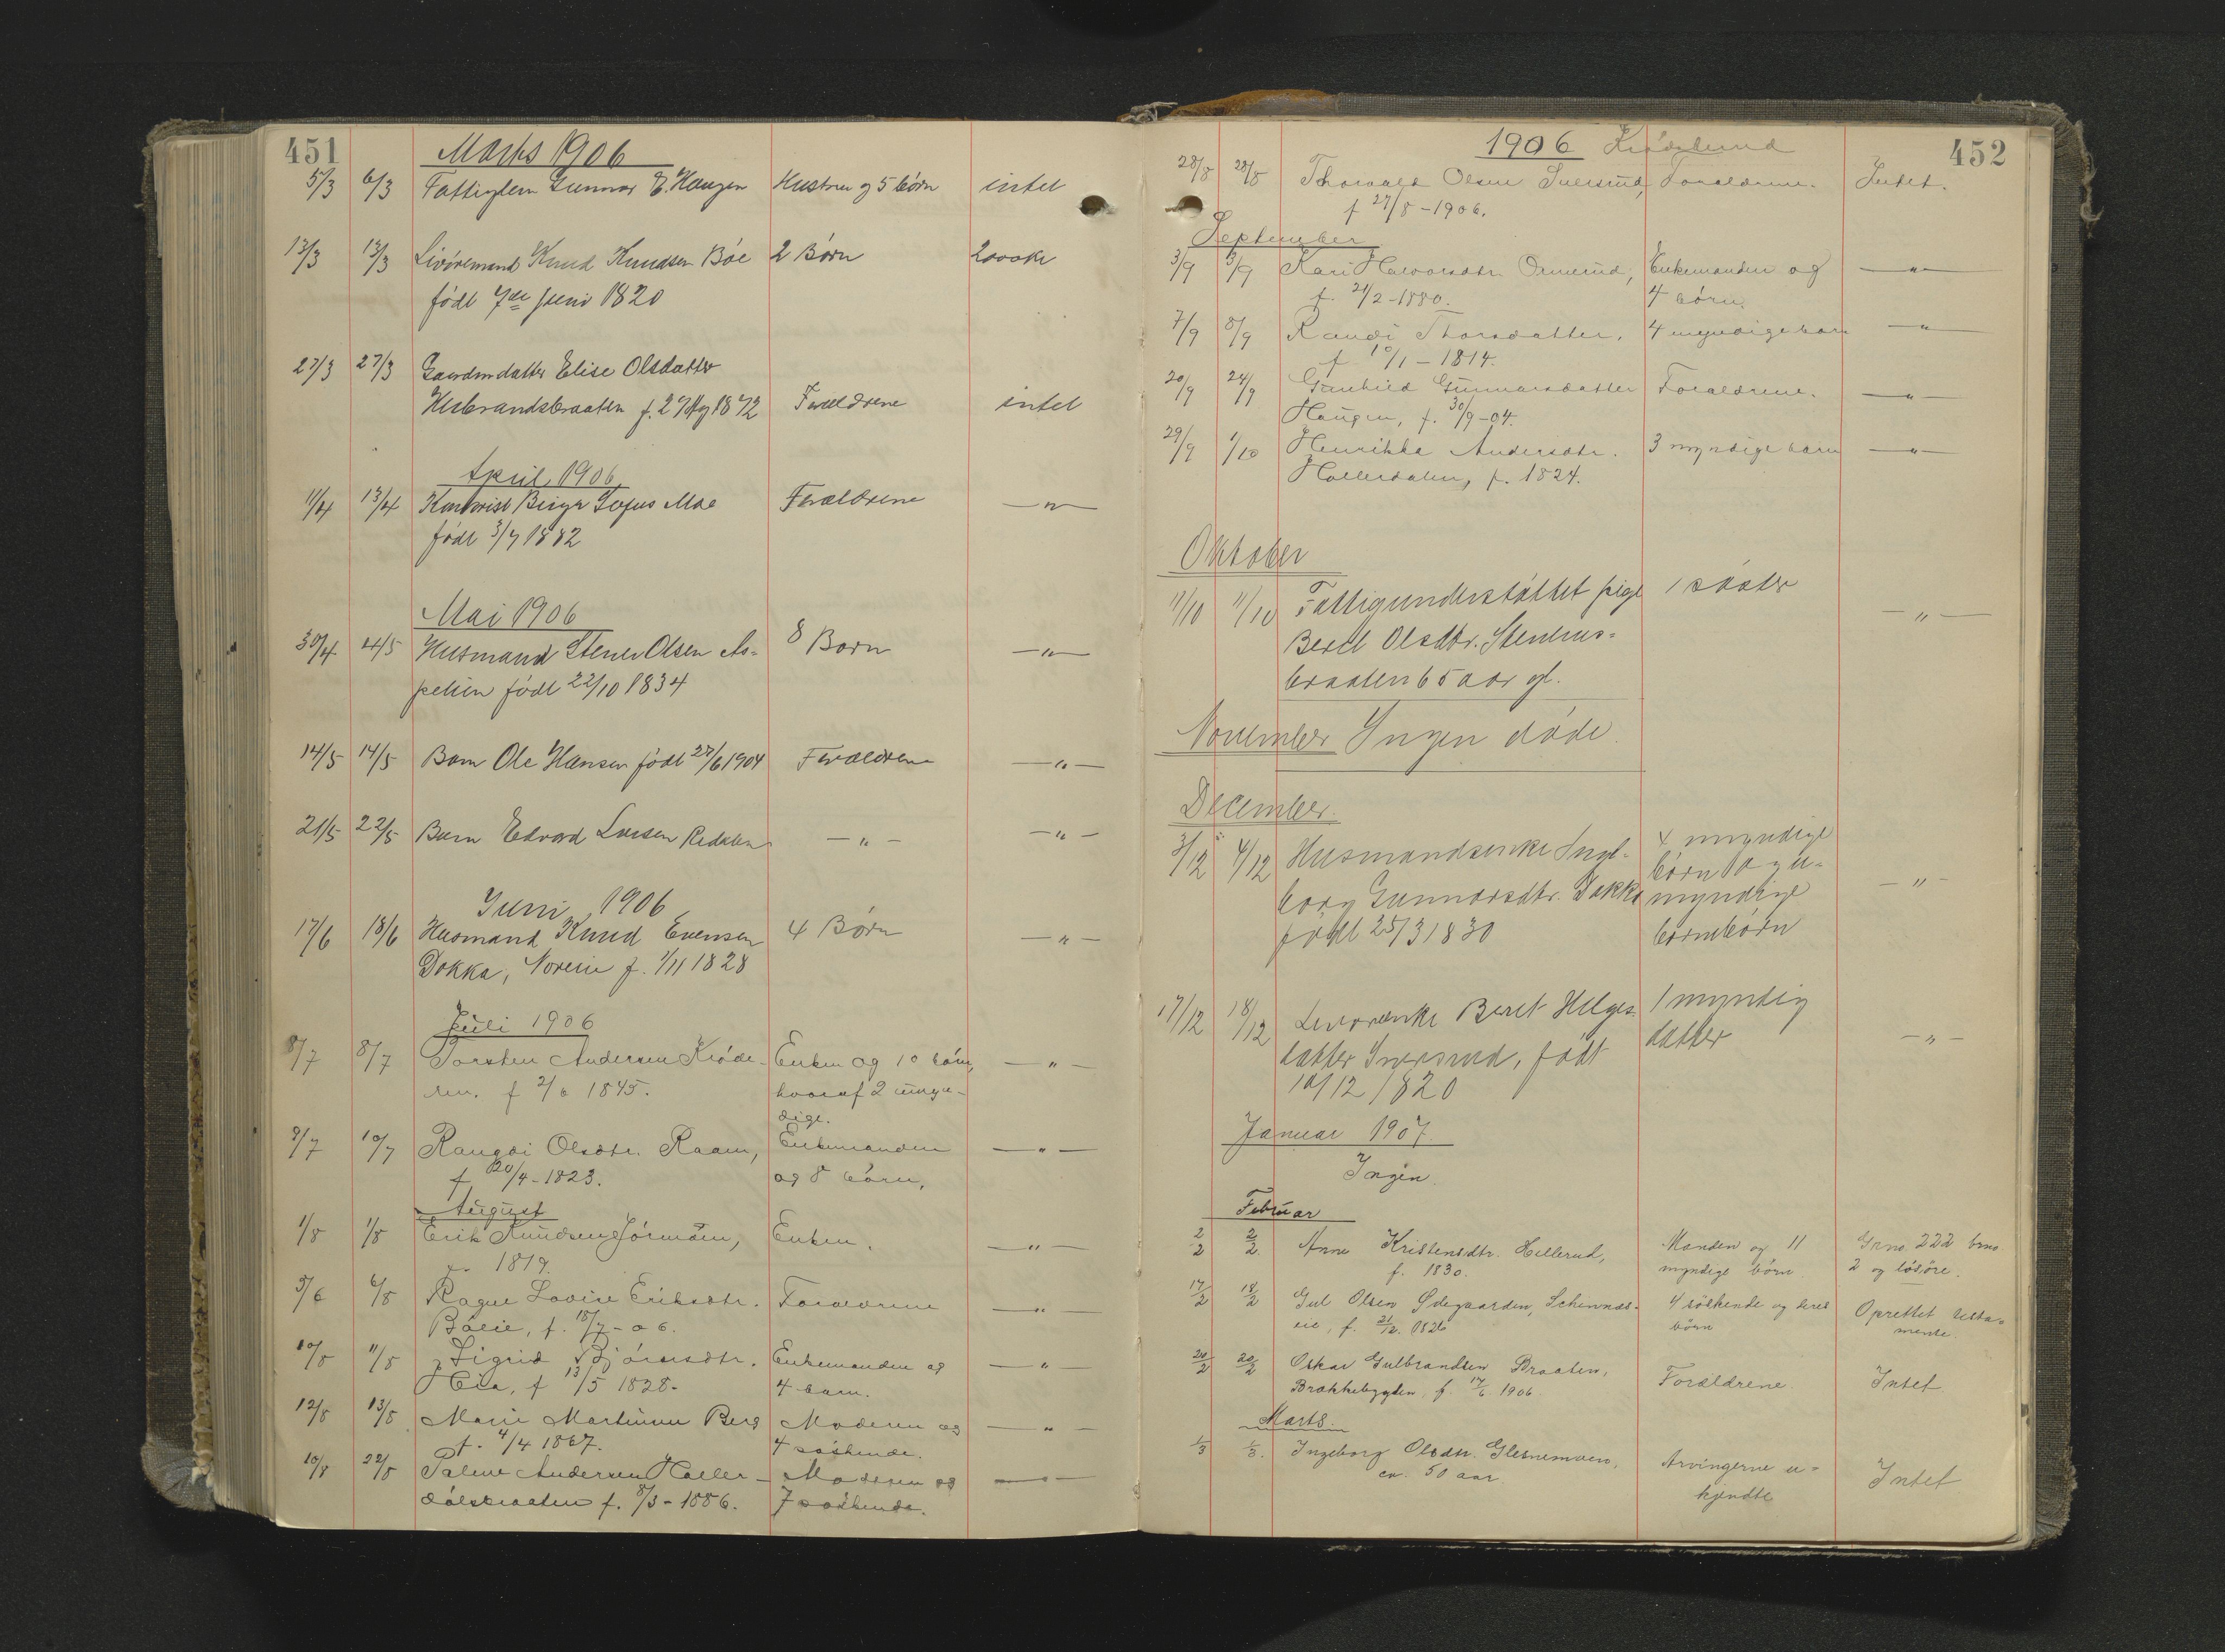 451
Marts 1906
5/3 6/3 Fattiglem Gunnar E. Haugen Hustru og 5 børn intet
13/3 13/3 Livøremand Knud Knudsen Bøe 2 Børn 2000 kr
født 7de Juni 1820
27/3 27/3 Gaardmdatter Elise Olsdatter
Hesbrandsbraaten f. 27 1872 Forældrene intet
April 1906
11/4 13/4 Birger Sofus Moe Forældrene —"—
født 3/7 1882
Mai 1906
30/4 4/5 Husmand Stener Olsen As- 8 Børn —"—
pelien født 22/10 1834
14/5 14/5 Barn Ole Hansen født 27/6 1904 Forældrene —"—
21/5 22/5 Barn Edvard Larsen —"— —"—
Juni 1906
17/6 18/6 Husmand Knud Evensen 4 Børn —"—
Dokka, Noreie f. 1/11 1828
Juli 1906
8/7 8/7 Torsten Andersen Krøde- Enken og 10 børn, —"—
ren. f 2/6 1845. hvoraf 2 umyn-
dige.
9/7 10/7 Rangdi Olsdtr. Raaen, Enkemanden —"—
f 20/4-1823. og 8 børn.
August
1/8 1/8 Erik Knudsen Jørmoen, Enken. —"—
1819.
5/6 6/8 Lovise Eriksdtr. Forældrene —"—
f. 18/7-06.
10/8 11/8 Sigrid Bjørnsdtr. Enkemanden og —"—
f 13/5 1828. 4 barn.
12/8 13/8 Marie Martinsen Berg Moderen og —"—
f. 4/4 1867. 4 søskende.
10/8 22/8 Palme Andersen Haller- Moderen og —"—
dalsbraaten f. 8/3-1886. 7 søskende.
1906 Krødsherad
452
28/8 28/8 Thorvald Olsen Forældrene. Intet.
f 27/8-1906.
September
3/9 3/9 Kari Halvorsdtr. Ormerud, Enkemanden og —"—
f. 21/2-1880. 4 børn.
7/9 8/9 Randi Thorsdatter, 4 myndige barn —"—
f 10/1-1814.
20/9 24/9 Gunhild Gunnarsdatter Forældrene. —"—
Haugen, f. 30/9-04.
29/9 1/10 Henrikka Andersdtr. 3 myndige barn —"—
Hallerdalen, f. 1824.
Oktober
11/10 11/10 Fattigunderstøttet pige 1 søster —"—
Beret Olsdtr. Stenhus-
braaten 65 aar gl.
November Ingen døde.
December.
3/12 4/12 Husmandsenke Inge- 4 myndige
borg Gunnarsdtr. Dokka børn og u- —"—
født 25/3 1830 myndige
børnebørn
17/12 18/12 Livørenke Beret Helges- 1 myndig
datter Iversrud, født datter —"—
10/12 1820
Januar 1907.
Ingen.
Februar
2/2 2/2. Anne Kristensdtr. Hillerud, Manden og 11 Grno. 222 brno.
f. 1830. myndige børn 2 og løsøre.
17/2 18/2 Gul Olsen Ødegaarden, 4 søskende og deres Oprettet testa-
eie, f. 21/12. 1826 børn mente
20/2 20/2 Oskar Gulbrandsen Braaten, Forældrene Intet
Brækkebygden, f. 17/6 1906
Marts.
1/3 1/3. Ingeborg Olsdtr. Glesnemoen, Arvingerne u- Intet
ca. 50 aar kjendte